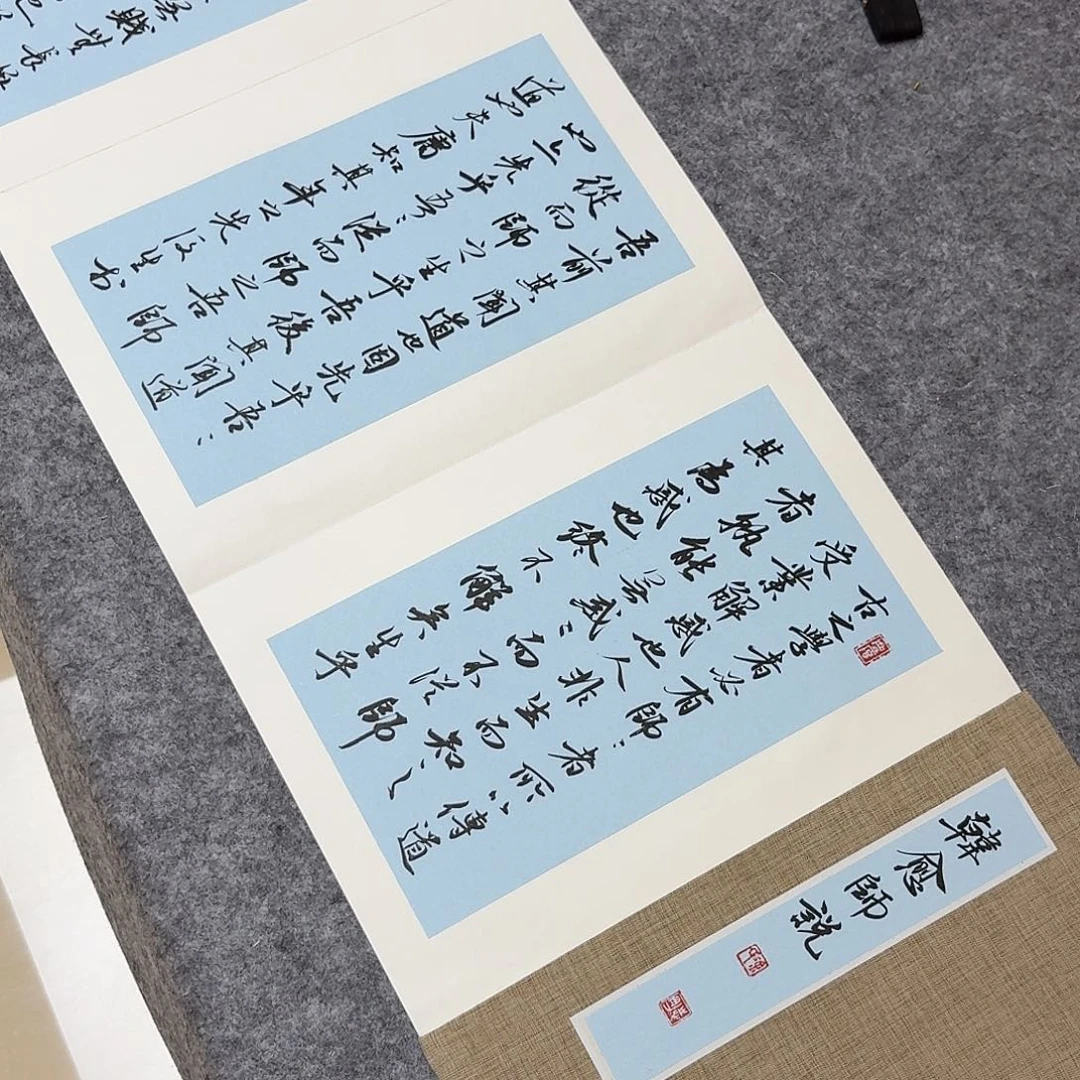 韓愈師說
古之學者必有師：者所以傳道
受業解惑也人非生而知之
者孰能無惑：而不從師
其為惑也終不解矣生乎
吾前其聞道也固先乎吾：
從而師之生乎吾後其聞道
也亦先乎吾：從而師之吾師
道也夫庸知其年之先後生於
賤無長無